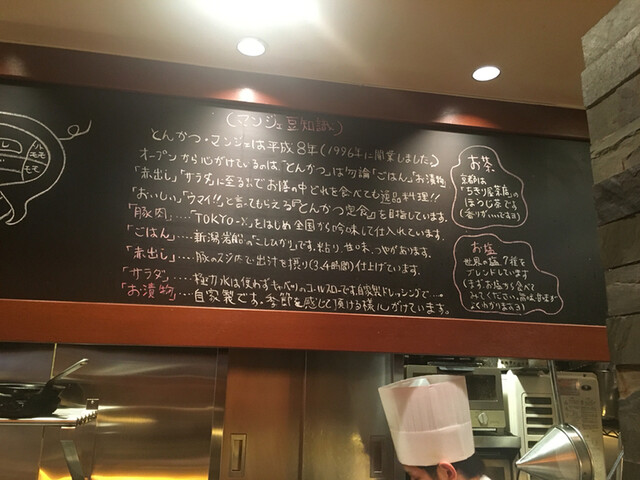 (マンジェ豆知識)
とんかつ・マンジェは平成8年(1996年に開業しました)
オープンから心がけているのは、「とんかつ」は勿論「ごはん」「お漬物」
「赤出し」「サラダ」に至るまでお膳の中どれを食べても逸品料理!!
「おいしい」「ウマイ!!」と言ってもらえる『とんかつ定食』を目指しています。
「豚肉」‥‥「TOKYO-X」をはじめ全国から吟味して仕入れています。
「ごはん」‥‥新潟岩船の「こしひかり」です。粘り、甘味、つやがあります。
「赤出し」‥‥豚のスジ肉で出汁を摂り(3、4時間)仕上げています。
「サラダ」‥‥極力水は使わずキャベツのコールスローです。自家製ドレッシングで
「お漬物」‥‥自家製です。季節を感じて頂ける様心がけています。
お茶
京都は
「ちきり屋茶店」の
ほうじ茶です
(香りがいいですヨ)
お塩
世界の塩7種を
ブレンドしています
(まずお塩から食べて
みてください。旨味、甘味が
よくわかりますヨ)
ソル
モモ
モモ